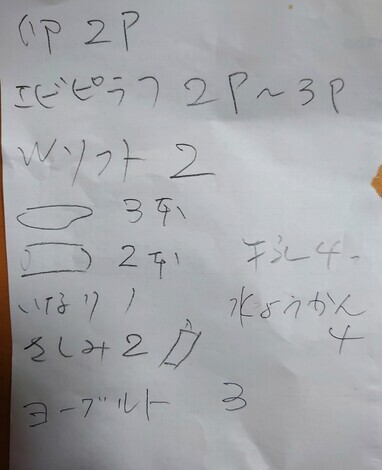 2P
エビピラフ 2P〜3P
Wソフト 2
3本
2本
いなり 1
さしみ 2
ヨーグルト 3
4
水ようかん
4